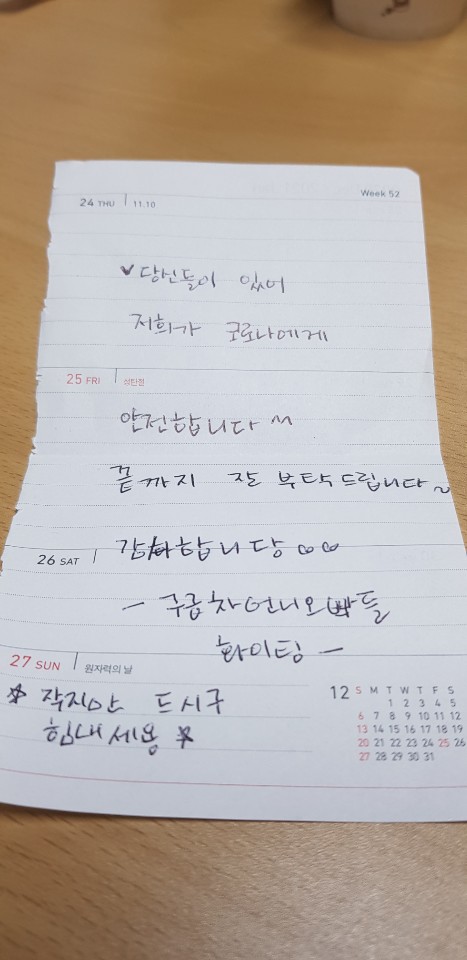 24 THU 11.10 Week 52
✓당신들이 있어
저희가 코로나에게
25 FRI 성탄절
안전합니다 ^^
끝까지 잘 부탁드립니다~
26 SAT
감사합니당
- 구급차 언니오빠들
화이팅 -
27 SUN 원자력의 날
☆ 작지만 드시구
힘내세용 ☆
12 S M T W T F S
1 2 3 4 5
6 7 8 9 10 11 12
13 14 15 16 17 18 19
20 21 22 23 24 25 26
27 28 29 30 31